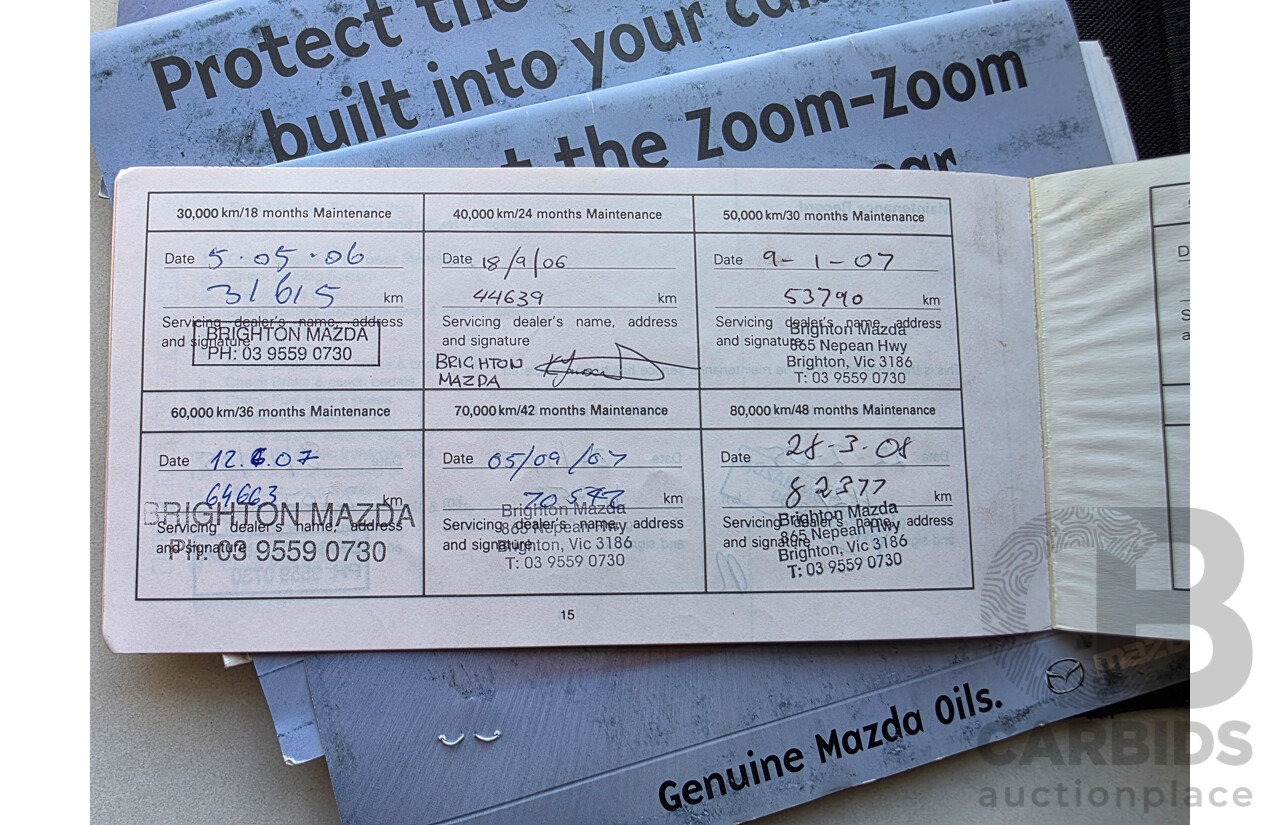 Protect the
built into your
t the Zoom-Zoom
30,000 km/18 months Maintenance
Date 5.05.06
31615 km
Servicing dealer's name, address
and signature
BRIGHTON MAZDA
PH: 03 9559 0730
40,000 km/24 months Maintenance
Date 18/9/06
44639 km
Servicing dealer's name, address
and signature
BRIGHTON
MAZDA
50,000 km/30 months Maintenance
Date 9-1-07
53790 km
Servicing dealer's name, address
and signature
Brighton Mazda
865 Nepean Hwy
Brighton, Vic 3186
T: 03 9559 0730
60,000 km/36 months Maintenance
Date 12.6.07
64663 km
Servicing dealer's name, address
and signature
BRIGHTON MAZDA
PH: 03 9559 0730
70,000 km/42 months Maintenance
Date 05/09/07
km
Servicing dealer's name, address
and signature
Brighton Mazda
865 Nepean Hwy
Brighton, Vic 3186
T: 03 9559 0730
80,000 km/48 months Maintenance
Date 28-3-08
82377 km
Servicing dealer's name, address
and signature
Brighton Mazda
865 Nepean Hwy
Brighton, Vic 3186
T: 03 9559 0730
15
mazda
Genuine Mazda Oils.
CB
CARBIDS
auctionplace